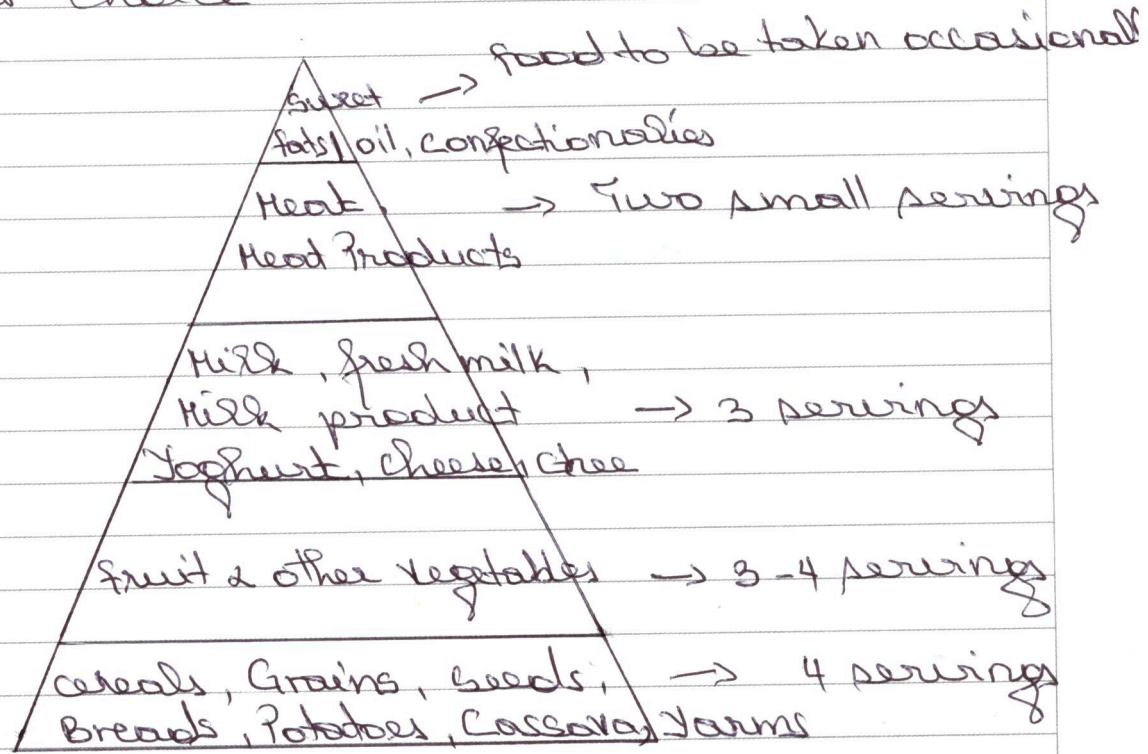 food to be taken occasional
sweet →
fats/oil, confectionalies
Meat, → Two small servings
Meat Products
Milk, fresh milk,
Milk product → 3 servings
Yoghurt, cheese, Ghee
fruit & other vegetables → 3-4 servings
cereals, Grains, Seeds, → 4 servings
Breads, Potatoes, Cassava, Yarms